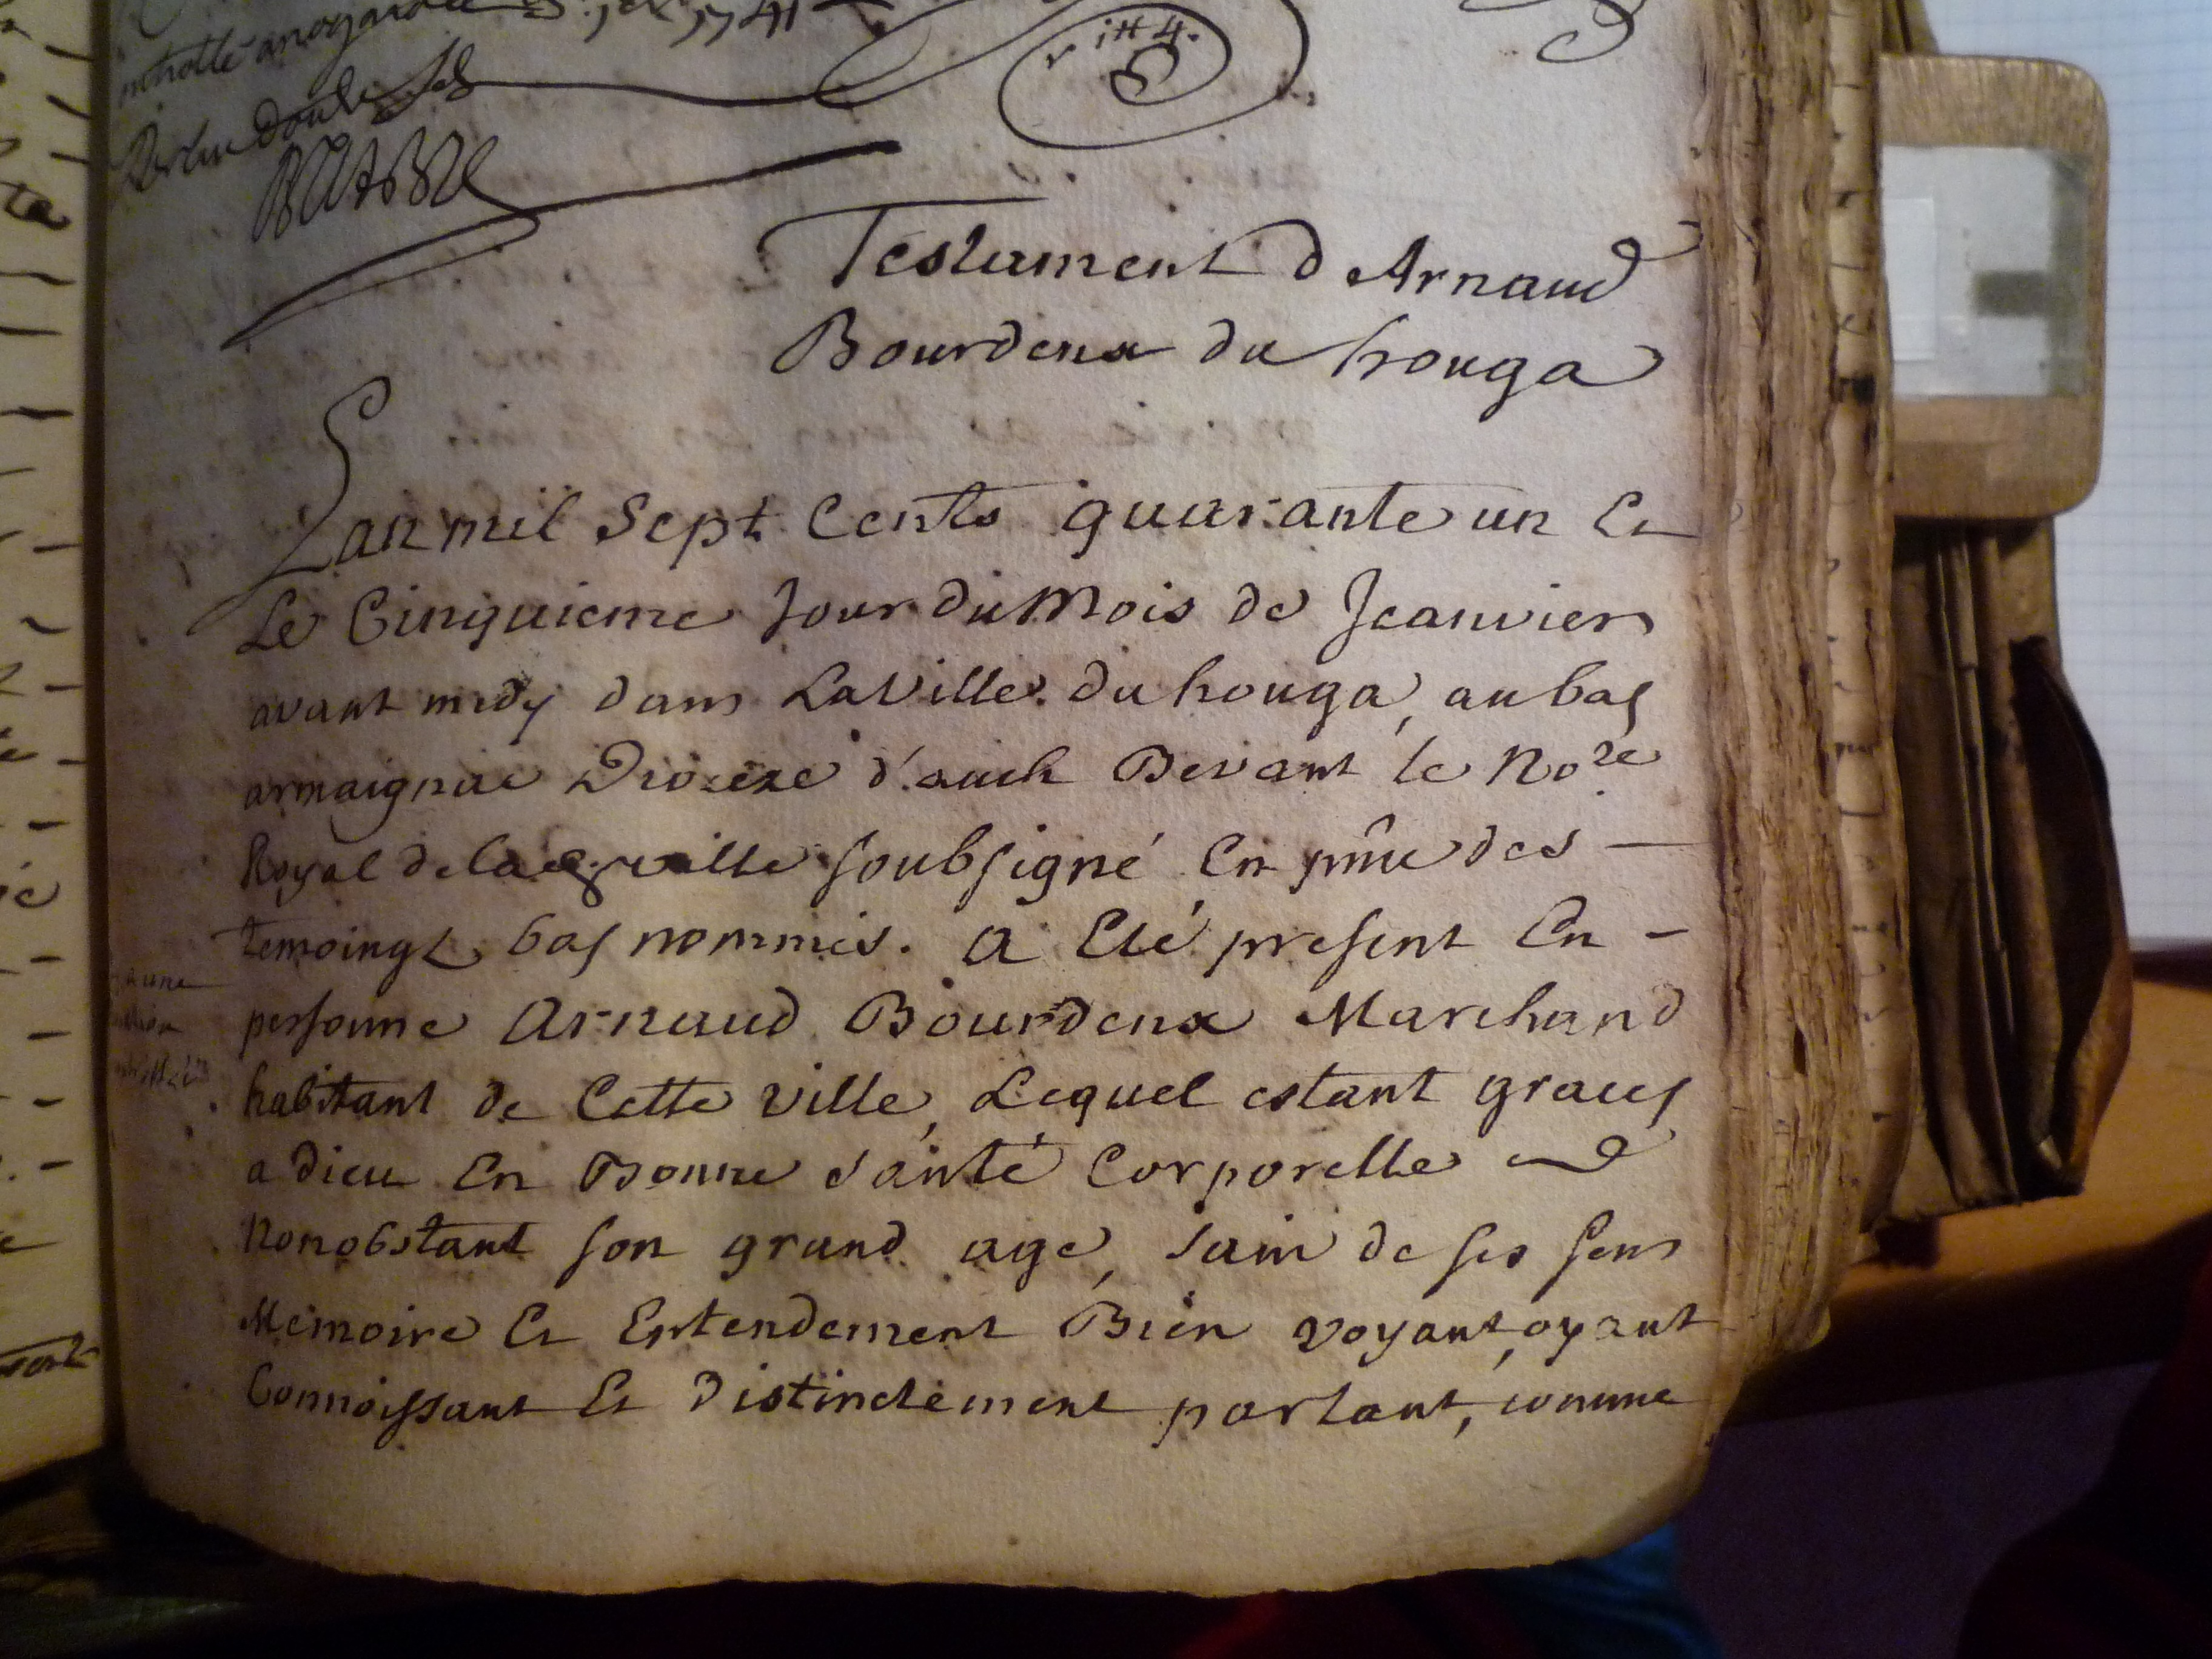 1741
Testament d Arnaud
Bourdeux du houga
Lan mil Sept Cents quarante un Et
Le Cinquieme Jour du Mois de Jeanvier
avant midy dans La Ville du houga, au bas
armaignac Diozeze d'auch Devant le Nore
Royal de la ville soubsigné En pñce des —
temoings bas nommés. a Eté present En —
personne Arnaud Bourdeux Marchand
habitant de Cette ville, Lequel estant graces
a dieu En Bonne Santé Corporelle
Nonobstant son grand age, sain de ses sens
Memoire Et Entendement Bien voyant, oyant
Connoissant Et Distinctement parlant, comme